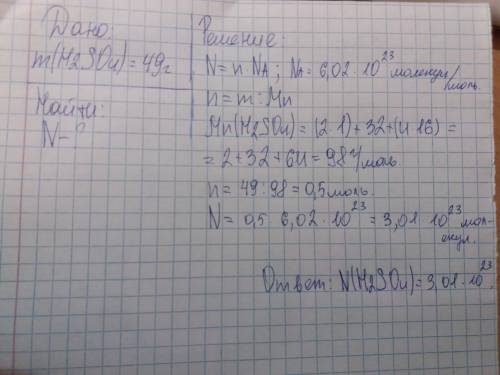 Дано:
m(H2SO4)=49г
Найти:
N-?
Решение:
N=n·NA; NA=6,02·10²³ молекул/моль.
n=m:Mn
Mn(H2SO4)=(2·1)+32+(4·16)=
=2+32+64=98г/моль.
n=49:98=0,5моль.
N=0,5·6,02·10²³=3,01·10²³мол-
екул.
Ответ: N(H2SO4)=3,01·10²³.